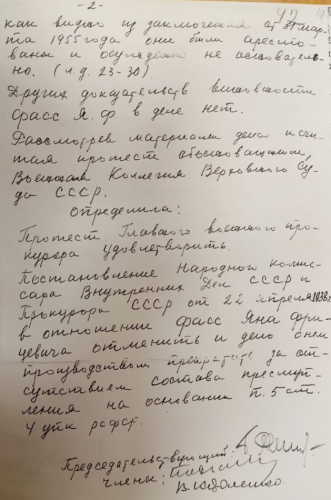 -2-
как видно из заключения от 31 мар-
та 1955 года они были аресто-
ваны и осуждены не основатель-
но. (л.д. 23-30).
Других доказательств виновности
Фасс Я.Ф в деле нет.
Рассмотрев материалы дела и счи-
тая протест обоснованным,
Военная Коллегия Верховного Су-
да СССР.
определила:
Протест Главного военного про-
курора удовлетворить.
Постановление Народного комис-
сара Внутренних Дел СССР и
Прокурора СССР от 22 апреля 1938г.
в отношении Фасс Яна Фри-
цевича отменить и дело о нем
производством прекратить за от-
сутствием состава преступ-
ления на основании п. 5 ст.
4 УПК РСФСР.
Председательствующий
Члены:
В. Коваленко.